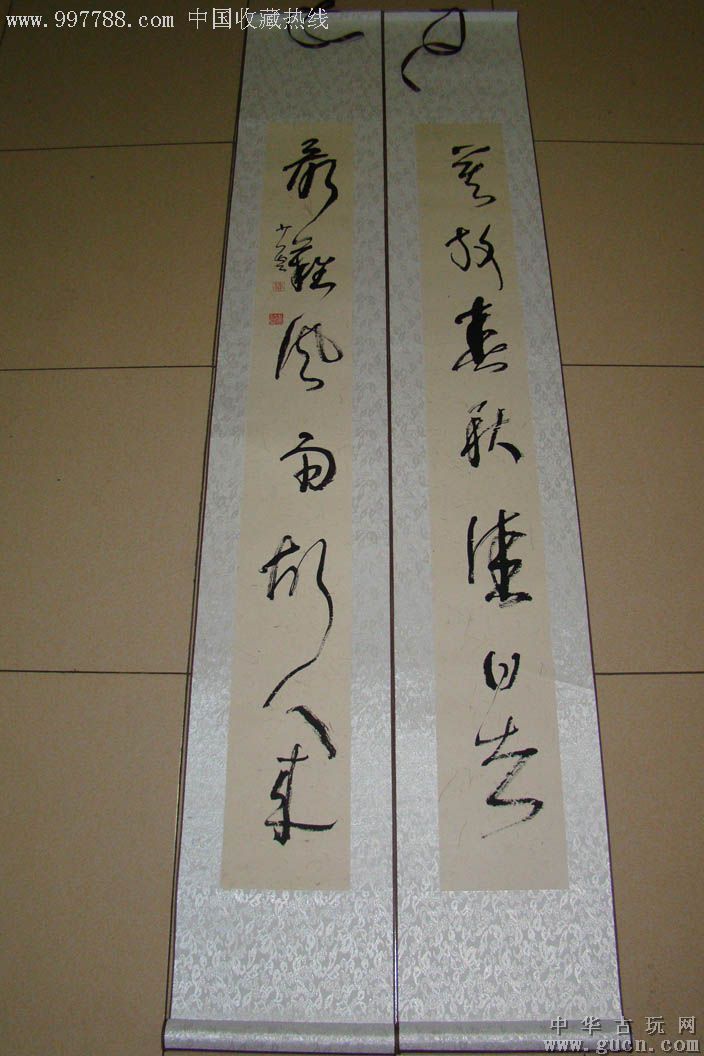 www.997788.com 中国收藏热线
莫放春秋佳日去
最难风雨故人来
中华古玩网
www.gucn.com